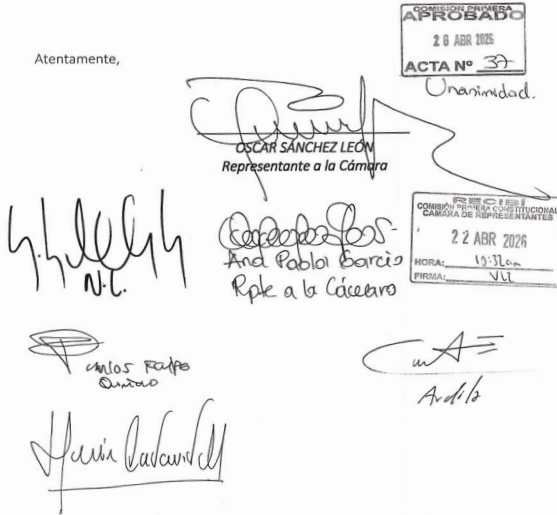 COMISIÓN PRIMERA
APROBADO
28 ABR 2026
ACTA Nº 37
Unanimidad.
Atentamente,
OSCAR SÁNCHEZ LEÓN
Representante a la Cámara
RECIBÍ
COMISIÓN PRIMERA CONSTITUCIONAL
CAMARA DE REPRESENTANTES
22 ABR 2026
HORA:
FIRMA:
N.C.
Ana Paola García
Rpte a la Cámara
Carlos Felipe
Quintero
Ardila